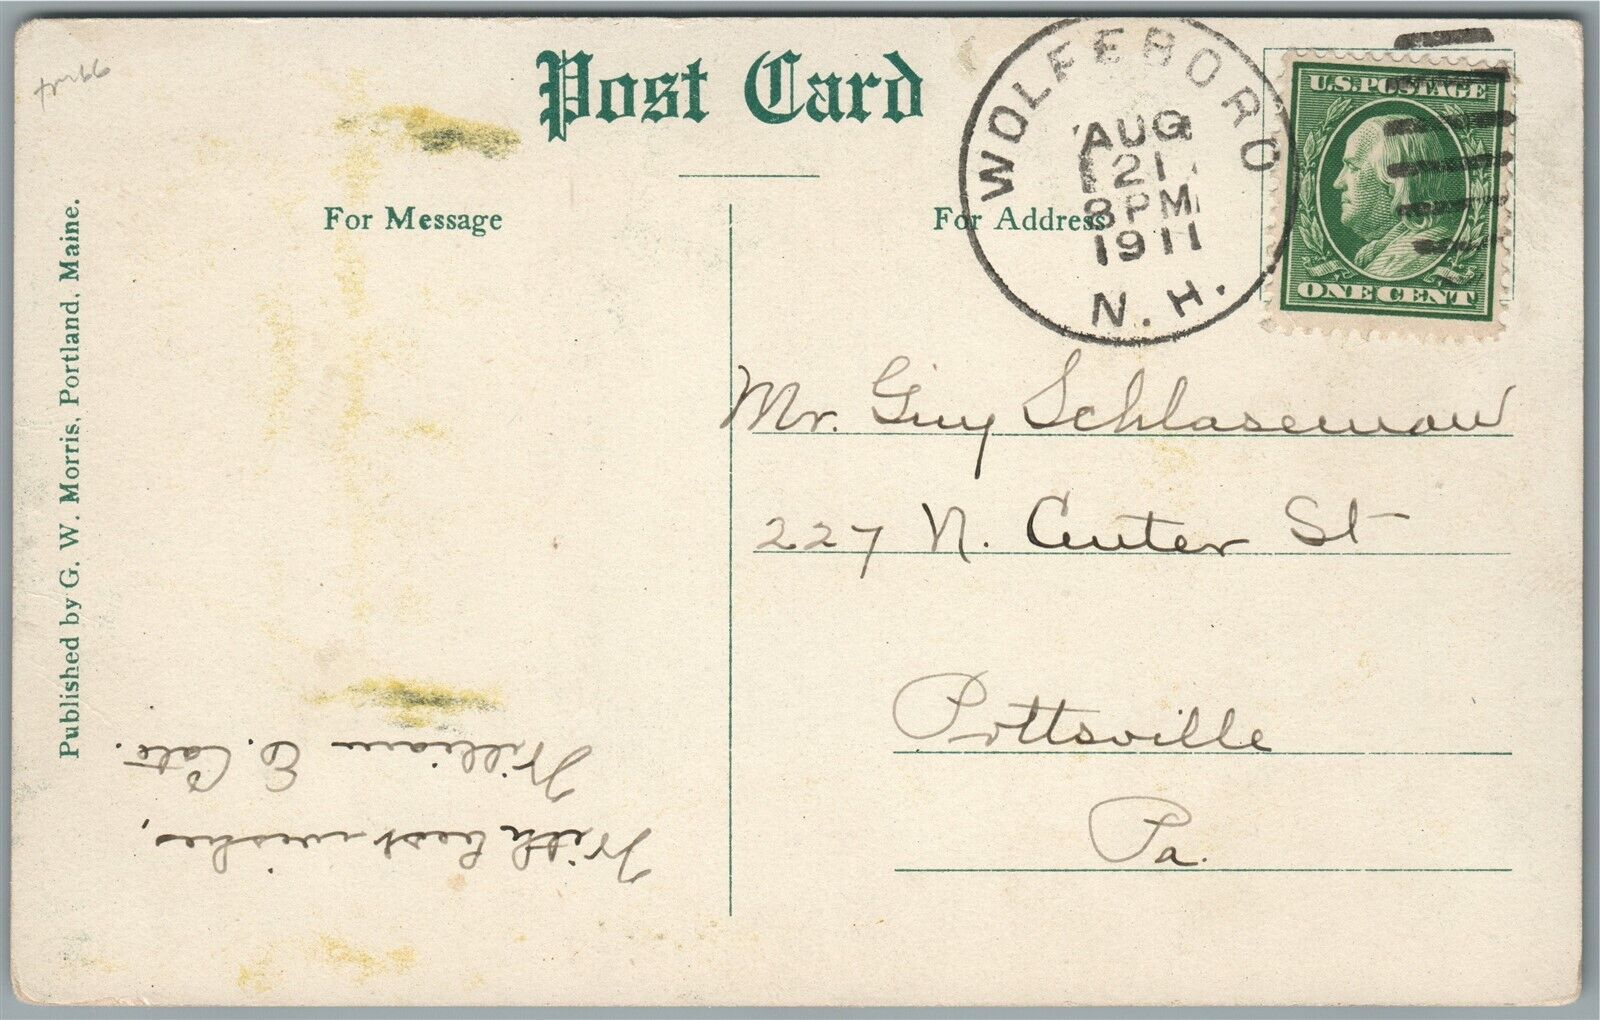 Post Card
For Message
For Address
Published by G. W. Morris, Portland, Maine.
WOLFEBORO
AUG
21
8 PM
1911
N. H.
U.S. POSTAGE
ONE CENT
Mr. Guy
227 N. Center St
Pottsville
Pa.
With best wishes,
William E. Cate.